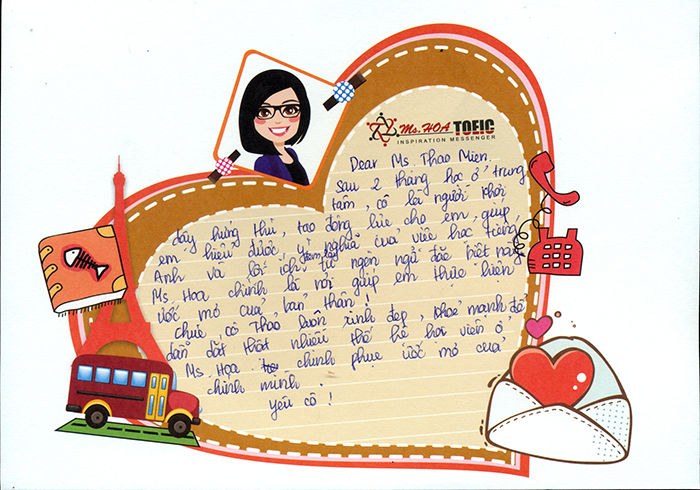 Ms. HOA TOEIC
INSPIRATION MESSENGER
Dear Ms Thao Mien.
Sau 2 tháng học ở trung
tâm, cô là người khơi
dậy hứng thú, tạo động lực cho em, giúp
em hiểu được ý nghĩa của việc học tiếng
Anh và lợi ích đem lại từ ngôn ngữ đặc biệt này
Ms Hoa chính là nơi giúp em thực hiện
ước mơ của bản thân!
Chúc cô Thao luôn xinh đẹp, khoẻ mạnh để
dẫn dắt thật nhiều thế hệ học viên ở
Ms Hoa chinh phục ước mơ của
chính mình.
Yêu cô!